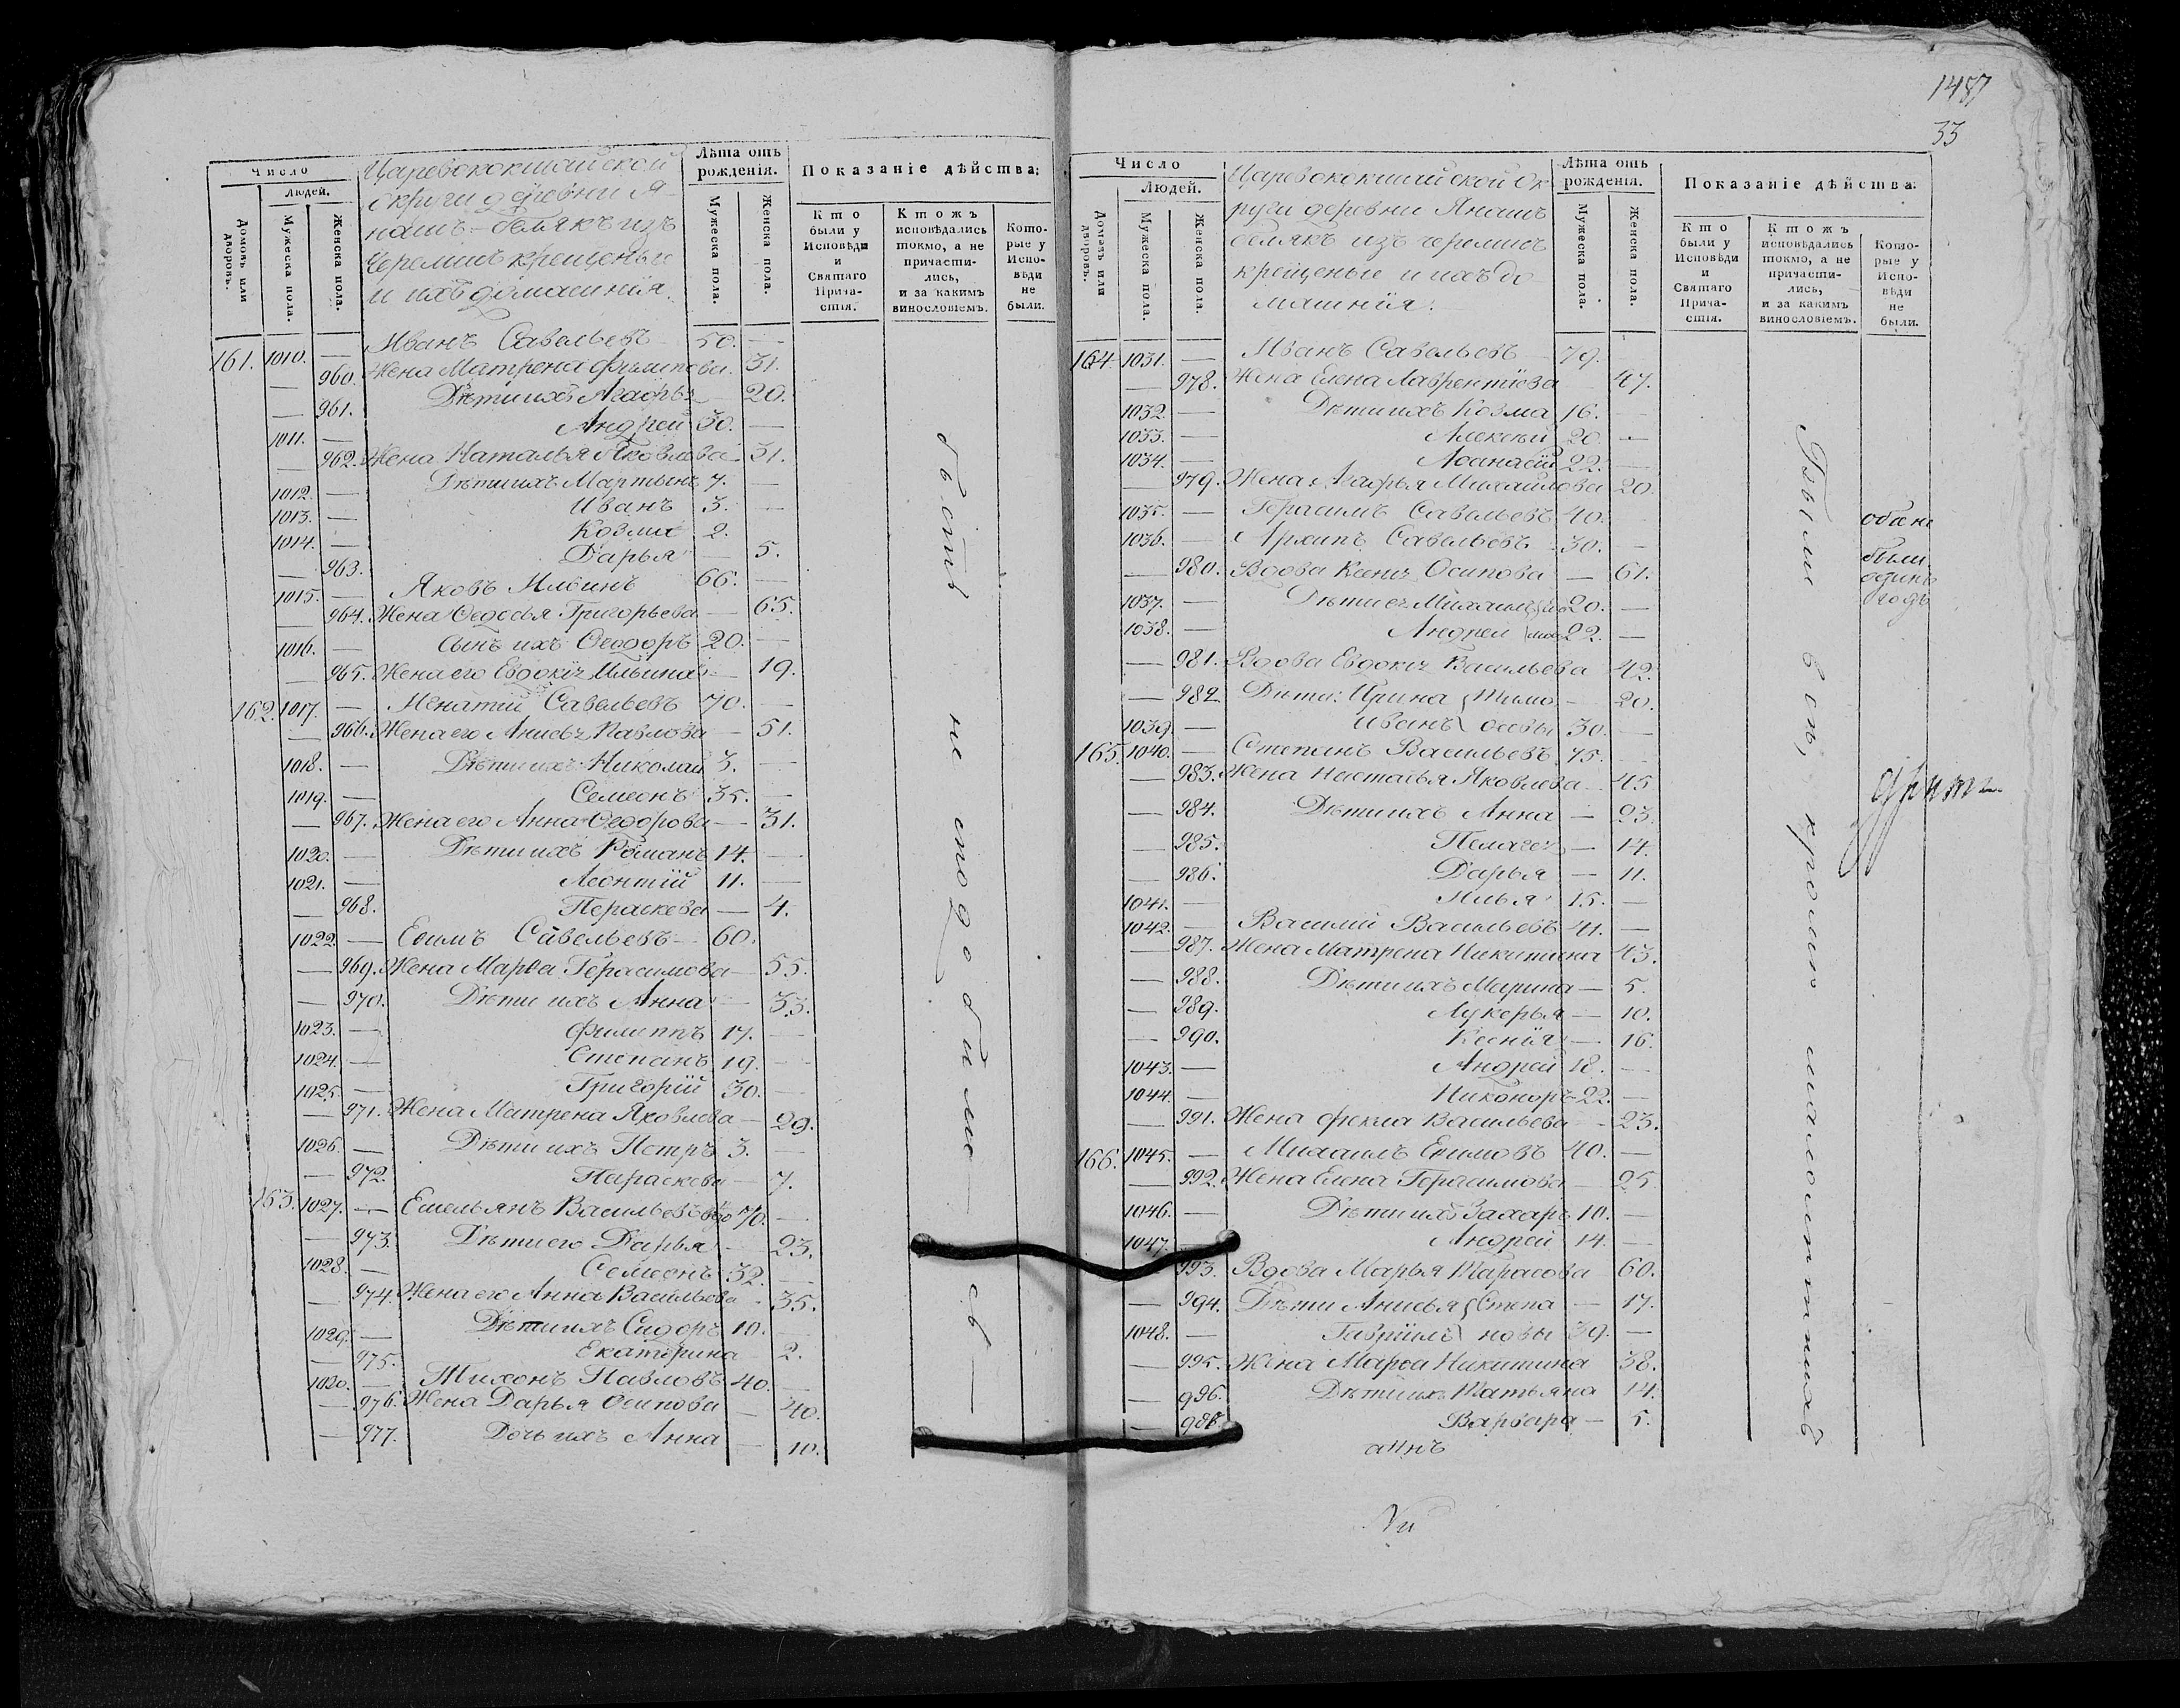 1487
33
Число
Людей.
Домовъ или дворовъ.
Мужеска пола.
Женска пола.
Царевококшайской
округи деревни Я-
нашъ-белякъ изъ
Черемисъ крещеные
и ихъ домашнія.
Лѣта отъ рожденія.
Мужеска пола.
Женска пола.
Показаніе дѣйства:
Кто были у Исповѣди и Святаго Прича-стія.
Ктожъ исповѣдались токмо, а не причасти-лись, и за какимъ винословіемъ.
Кото-рые у Испо-вѣди не были.
161. 1010. — Иванъ Савельевъ 50. —
— 960. Жена Матрена Филипова. 31.
— 961. Дѣти ихъ Агафья — 20.
1011. — Андрей 30. —
— 962. Жена Наталья Яковлева — 31.
1012. — Дѣти ихъ Мартынъ 7. —
1013. — Иванъ 3. —
1014. — Козма 2.
— 963. Дарья — 5.
1015. — Яковъ Ильинъ 66. —
— 964. Жена Ѳедосья Григорьева — 65.
1016. — Сынъ ихъ Ѳеодоръ 20. —
— 965. Жена его Евдокія Ильина — 19.
162. 1017. — Игнатій Савельевъ 70. —
— 966. Жена его Анисья Павлова — 51.
1018. — Дѣти ихъ Николай 3. —
1019. — Семеонъ 35. —
— 967. Жена его Анна Ѳедорова — 31.
1020. — Дѣти ихъ Романъ 14. —
1021. — Леонтій 11. —
— 968. Пераскева — 4.
1022. — Ефимъ Савельевъ — 60.
— 969. Жена Марѳа Герасимова — 55.
— 970. Дѣти ихъ Анна — 33.
1023. — Филиппъ 17. —
1024. — Степанъ 19. —
1025. — Григорій 30. —
— 971. Жена Матрена Яковлева — 29.
1026. — Дѣти ихъ Петръ 3. —
— 972. Параскева — 7.
163. 1027. — Емельянъ Васильевъ 70. —
— 973. Дѣти его Дарья — 23.
1028. — Семеонъ 32. —
— 974. Жена его Анна Васильева — 35.
1029. — Дѣти ихъ Сидоръ 10. —
— 975. Екатерина 2.
1030. — Тихонъ Павловъ 40. —
— 976. Жена Дарья Осипова — 40.
— 977. Дочь ихъ Анна — 10.
не сподобились
Число
Людей.
Домовъ или дворовъ.
Мужеска пола.
Женска пола.
Царевококшайской Ок-
руги деревни Янашъ
белякъ изъ черемисъ
крещеные и ихъ до-
машнія.
Лѣта отъ рожденія.
Мужеска пола.
Женска пола.
Показаніе дѣйства:
Кто были у Исповѣди и Святаго Прича-стія.
Ктожъ исповѣдались токмо, а не причасти-лись, и за какимъ винословіемъ.
Кото-рые у Испо-вѣди не были.
164. 1031. — Иванъ Савельевъ — 79. —
— 978. Жена Елена Лаврентіева 47.
1032. — Дѣти ихъ Козма 16. —
1033. — Алексѣй 20. —
1034. — Аѳанасій 22. —
— 979. Жена Агафья Михайлова 20.
1035. — Герасимъ Савельевъ 40.
1036. — Архипъ Савельевъ 30. —
— 980. Вдова Ксенія Осипова — 61.
1037. — Дѣти ея Михаилъ 20. —
1038. — Андрей 22. —
— 981. Вдова Евдокія Васильева 42.
— 982. Дѣти: Ирина Тимо — 20.
1039. — Иванъ ѳеевы 30. —
165. 1040. — Степанъ Васильевъ 75. —
— 983. Жена Настасья Яковлева — 45
— 984. Дѣти ихъ Анна — 23.
— 985. Пелагея — 14.
— 986. Дарья — 11.
1041. — Илья 15. —
1042. — Василій Васильевъ 41. —
— 987. Жена Матрена Никитина 43.
— 988. Дѣти ихъ Марина — 5.
— 989. Лукерья — 10.
— 990. Ксенія — 16.
1043. — Андрей 18. —
1044. — Никоноръ 22. —
— 991. Жена Фекла Васильева — 23.
166. 1045. — Михаилъ Ефимовъ 40. —
— 992. Жена Елена Герасимова — 25.
1046. — Дѣти ихъ Захаръ 10. —
1047. — Андрей 14. —
993. Вдова Марья Тарасова 60.
— 994. Дѣти Анисья Степа — 17.
1048. — Гавріилъ новы 39. —
— 995. Жена Марѳа Никитина 38.
— 996. Дѣти ихъ Татьяна 14.
— Варвара — 5.
кромѣ малолѣтнихъ
были
одинъ
годъ